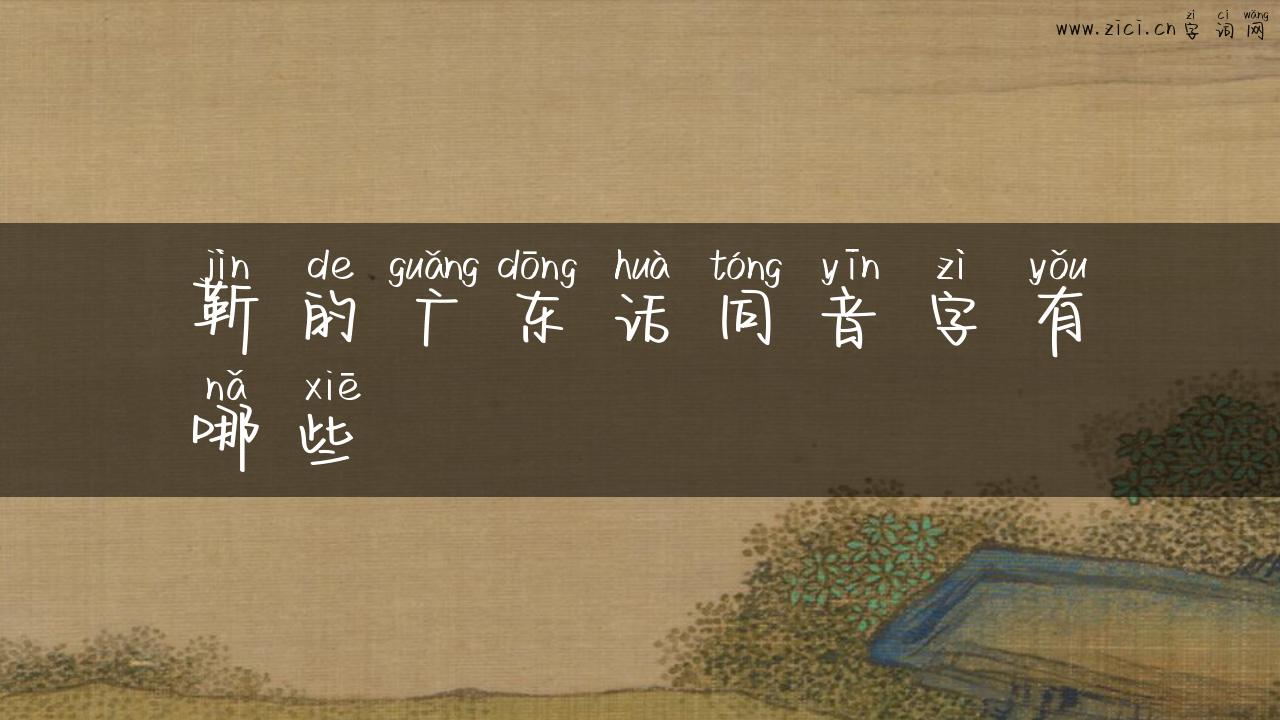 zì cí wǎng
www.zici.cn 字词网
jìn de guǎng dōng huà tóng yīn zì yǒu
靳的广东话同音字有
nǎ xiē
哪些